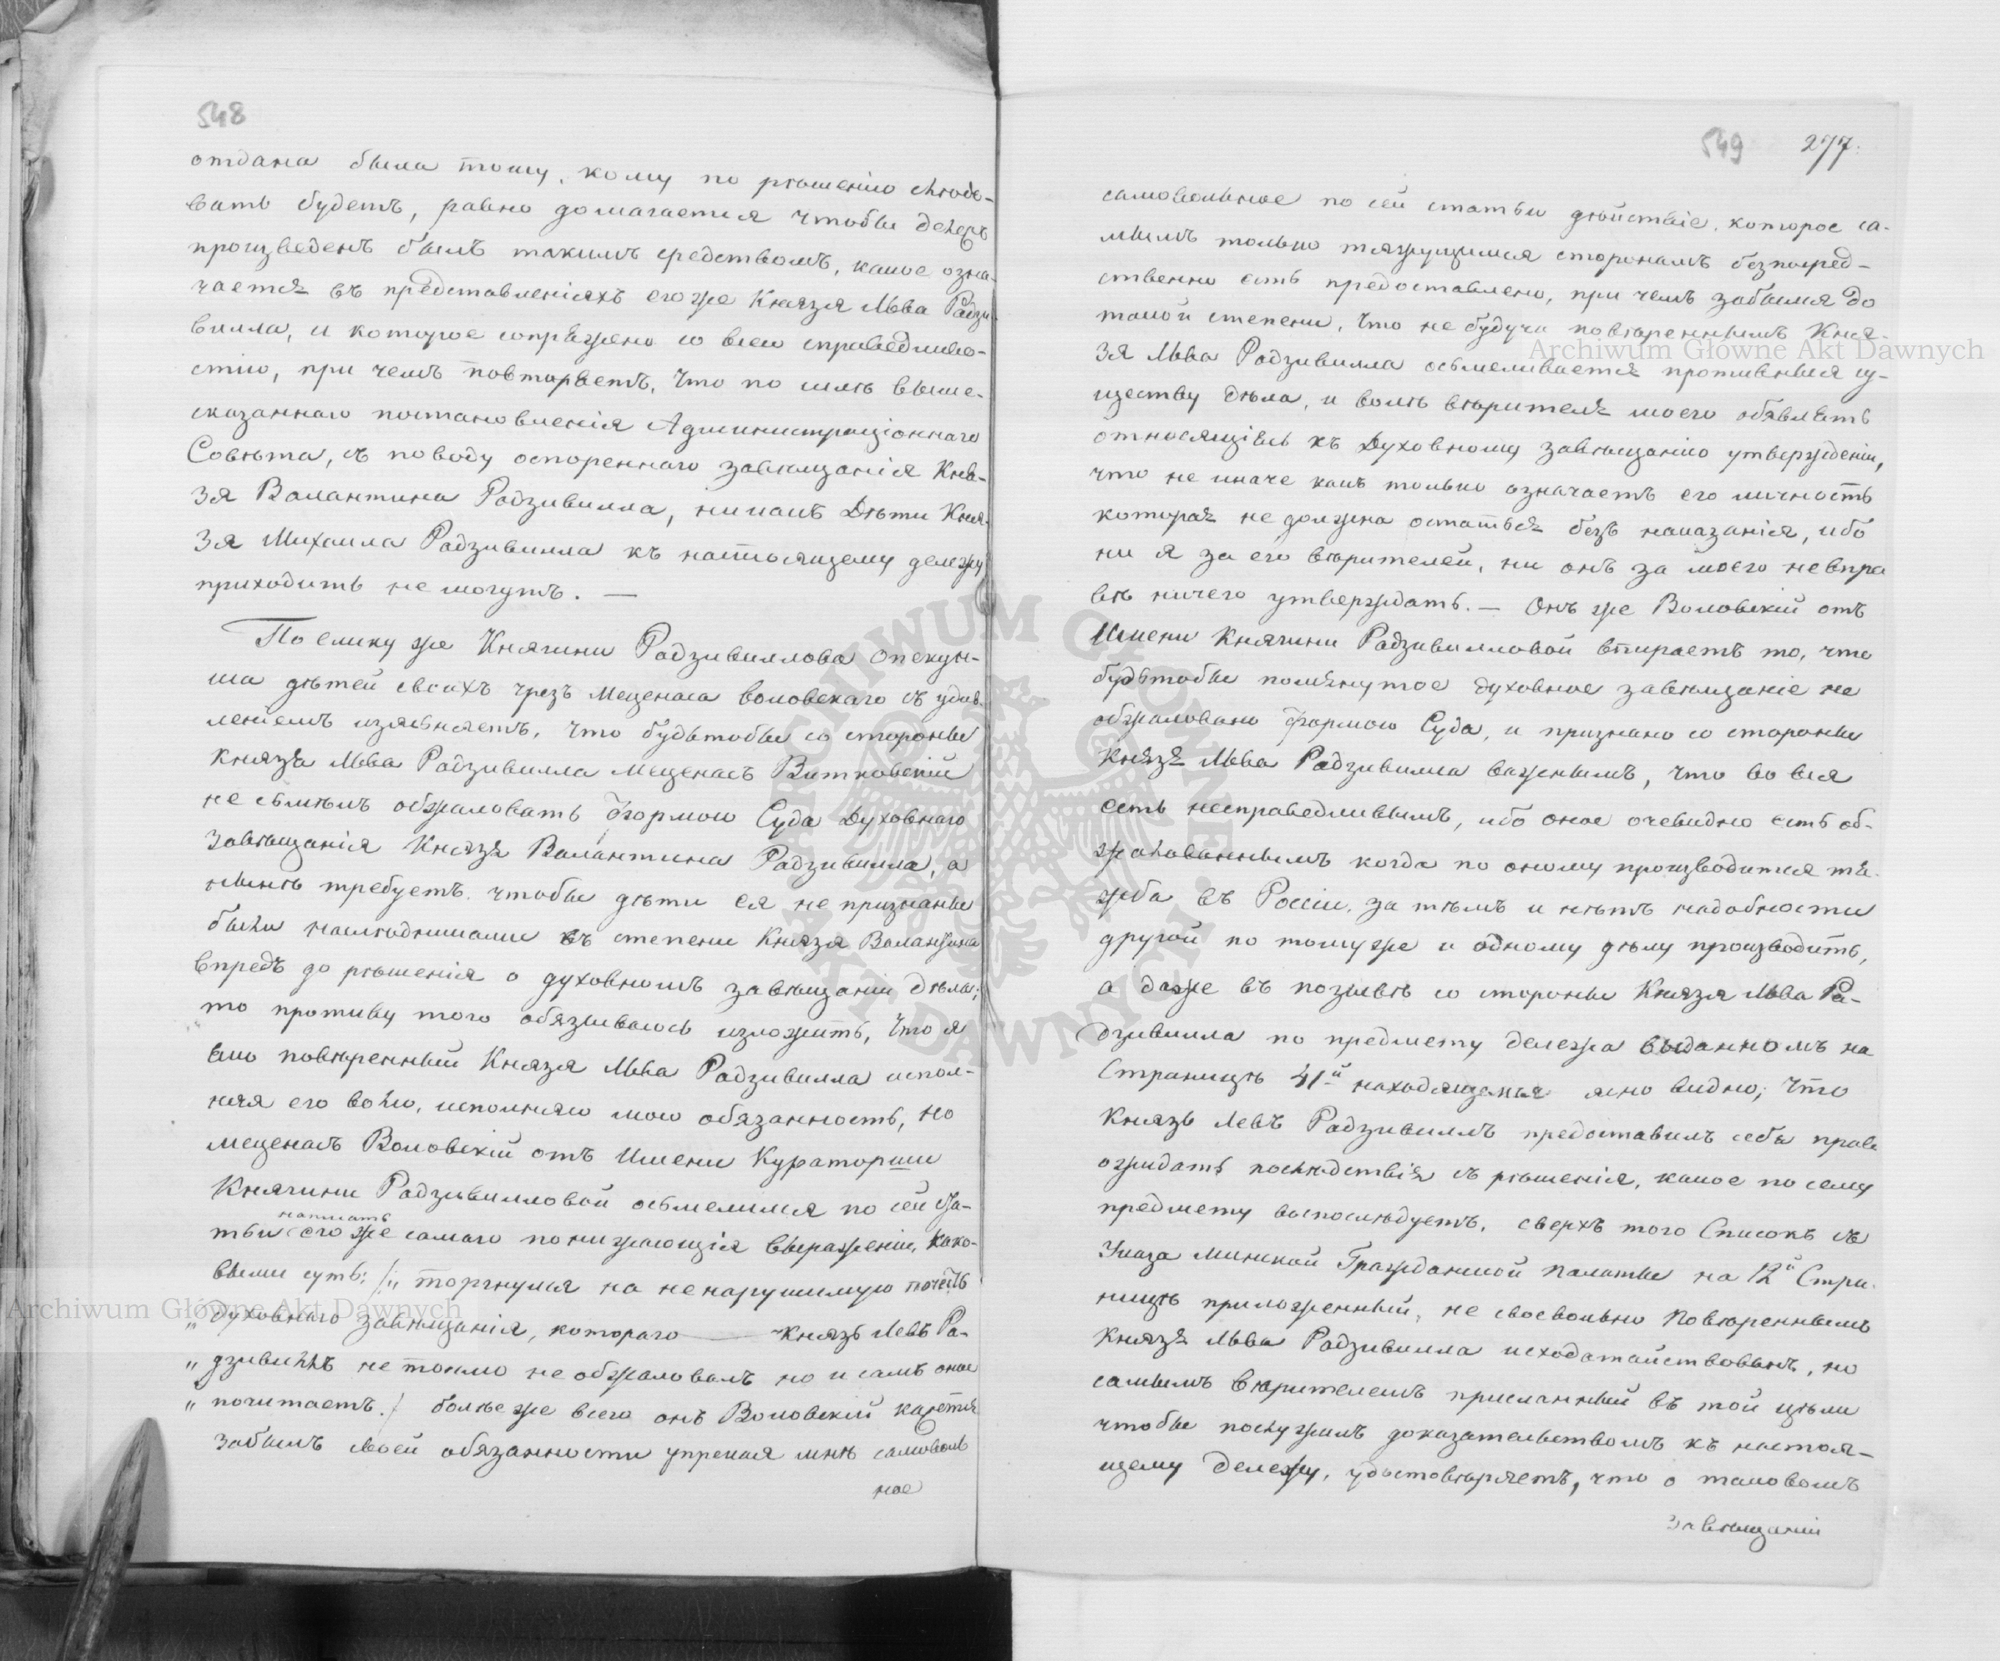 548
отдана была тому, кому по рѣшенію слѣдо-
вать будетъ, равно домагается чтобы дележъ
произведенъ былъ такимъ средствомъ, какое озна-
чается въ представленіяхъ его же Князя Льва Радзи-
вилла, и которое сопряжено со всею справедливо-
стію, при чемъ повторяетъ, что по силѣ выше-
сказаннаго постановленія Администраціоннаго
Совѣта, съ поводу оспореннаго завѣщанія Кня-
зя Валантина Радзивилла, никакъ Дѣти Кня-
зя Михаила Радзивилла къ настоящему дележу
приходить не могутъ. —
Поелику же Княгини Радзивиллова опекун-
ша дѣтей своихъ чрезъ Меценаса Воловскаго съ удив-
леніемъ изъясняетъ, что будьтобы со стороны
Князя Льва Радзивилла Меценасъ Витковскій
не съмѣлъ обжаловать формою Суда Духовнаго
завѣщанія Князя Валантина Радзивилла, а
нынѣ требуетъ чтобы дѣти ея не признаны
были наслѣдниками въ степени Князя Валантина
впредь до рѣшенія о духовномъ завѣщаніи дѣлы;
то противу того обязываюсь изложить, что я
яко повѣренный Князя Льва Радзивилла испол-
няя его волю, исполняю мою обязанность, но
меценасъ Воловскій отъ Имени Кураторши
Княгини Радзивилловой осьмелился по сей ста-
написать
тьи его же самаго понижающія выраженіи, како-
выми суть: /„ торгнулся на ненарушимую почесть
„ духовнаго завѣщанія, котораго — Князь Левъ Ра-
„ дзивиллъ не токмо не обжаловалъ но и самъ оное
„ почитаетъ./ болѣе же всего онъ Воловскій кажется
забылъ своей обязанности упрекая мнѣ самоволь
ное
549 277.
самовольное по сей статьи дѣйствіе, которое са-
мымъ только тяжущимся сторонамъ безпосред-
ственно есть предоставлено, при чемъ забылся до
такой степени, что не будучи повѣреннымъ Кня-
зя Льва Радзивилла осьмеливается противныя су-
ществу дѣла, и волѣ вѣрителя моего объявлять
относящіясь къ Духовному завѣщанію утвержденіи,
что не иначе какъ только означаетъ его личность
которая не должна остаться безъ наказанія, ибо
ни я за его вѣрителей, ни онъ за моего невпра
вѣ ничего утверждать. — Онъ же Воловскій отъ
Имени Княгини Радзивилловой впираетъ то, что
будьтобы помянутое духовное завѣщаніе не
обжаловано формою Суда, и признано со стороны
Князя Льва Радзивилла важнымъ, что во вся
есть несправедливымъ, ибо оное очевидно есть об-
жалованнымъ когда по оному производится тя-
жба въ Россіи, за тѣмъ и нѣтъ надобности
другой по томуже и одному дѣлу производить,
а даже въ позывѣ со стороны Князя Льва Ра-
дзивилла по предмету дележа выданномъ на
Страницѣ 41й находящемся ясно видно, что
Князь Левъ Радзивиллъ предоставилъ себѣ право
ожидать послѣдствія съ рѣшенія, какое по сему
предмету воспослѣдуетъ, сверхъ того Списокъ съ
Указа Минской Гражданской Палаты на 12й Стра-
ницѣ приложенный, не своевольно Повѣреннымъ
Князя Льва Радзивилла исходатайствованъ, но
самымъ вѣрителемъ присланный въ той цѣли
чтобы послужилъ доказательствомъ къ настоя-
щему дележу, удостовѣряетъ, что о таковомъ
завѣщаніи
Archiwum Główne Akt Dawnych
Archiwum Główne Akt Dawnych
ARCHIWUM GŁÓWNE AKT DAWNYCH